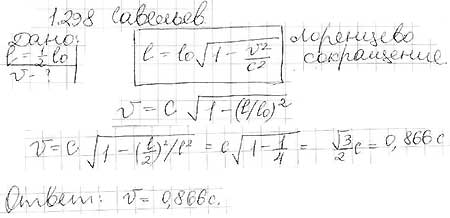 1.298 Савельев
Дано:
l = 1/2 l₀
v - ?
l = l₀ √(1 - v²/c²)
Лоренцево сокращение.
v = c √(1 - (l/l₀)²)
v = c √(1 - (l/2)²/l²) = c √(1 - 1/4) = √3/2 c = 0,866 c
Ответ: v = 0,866 c.